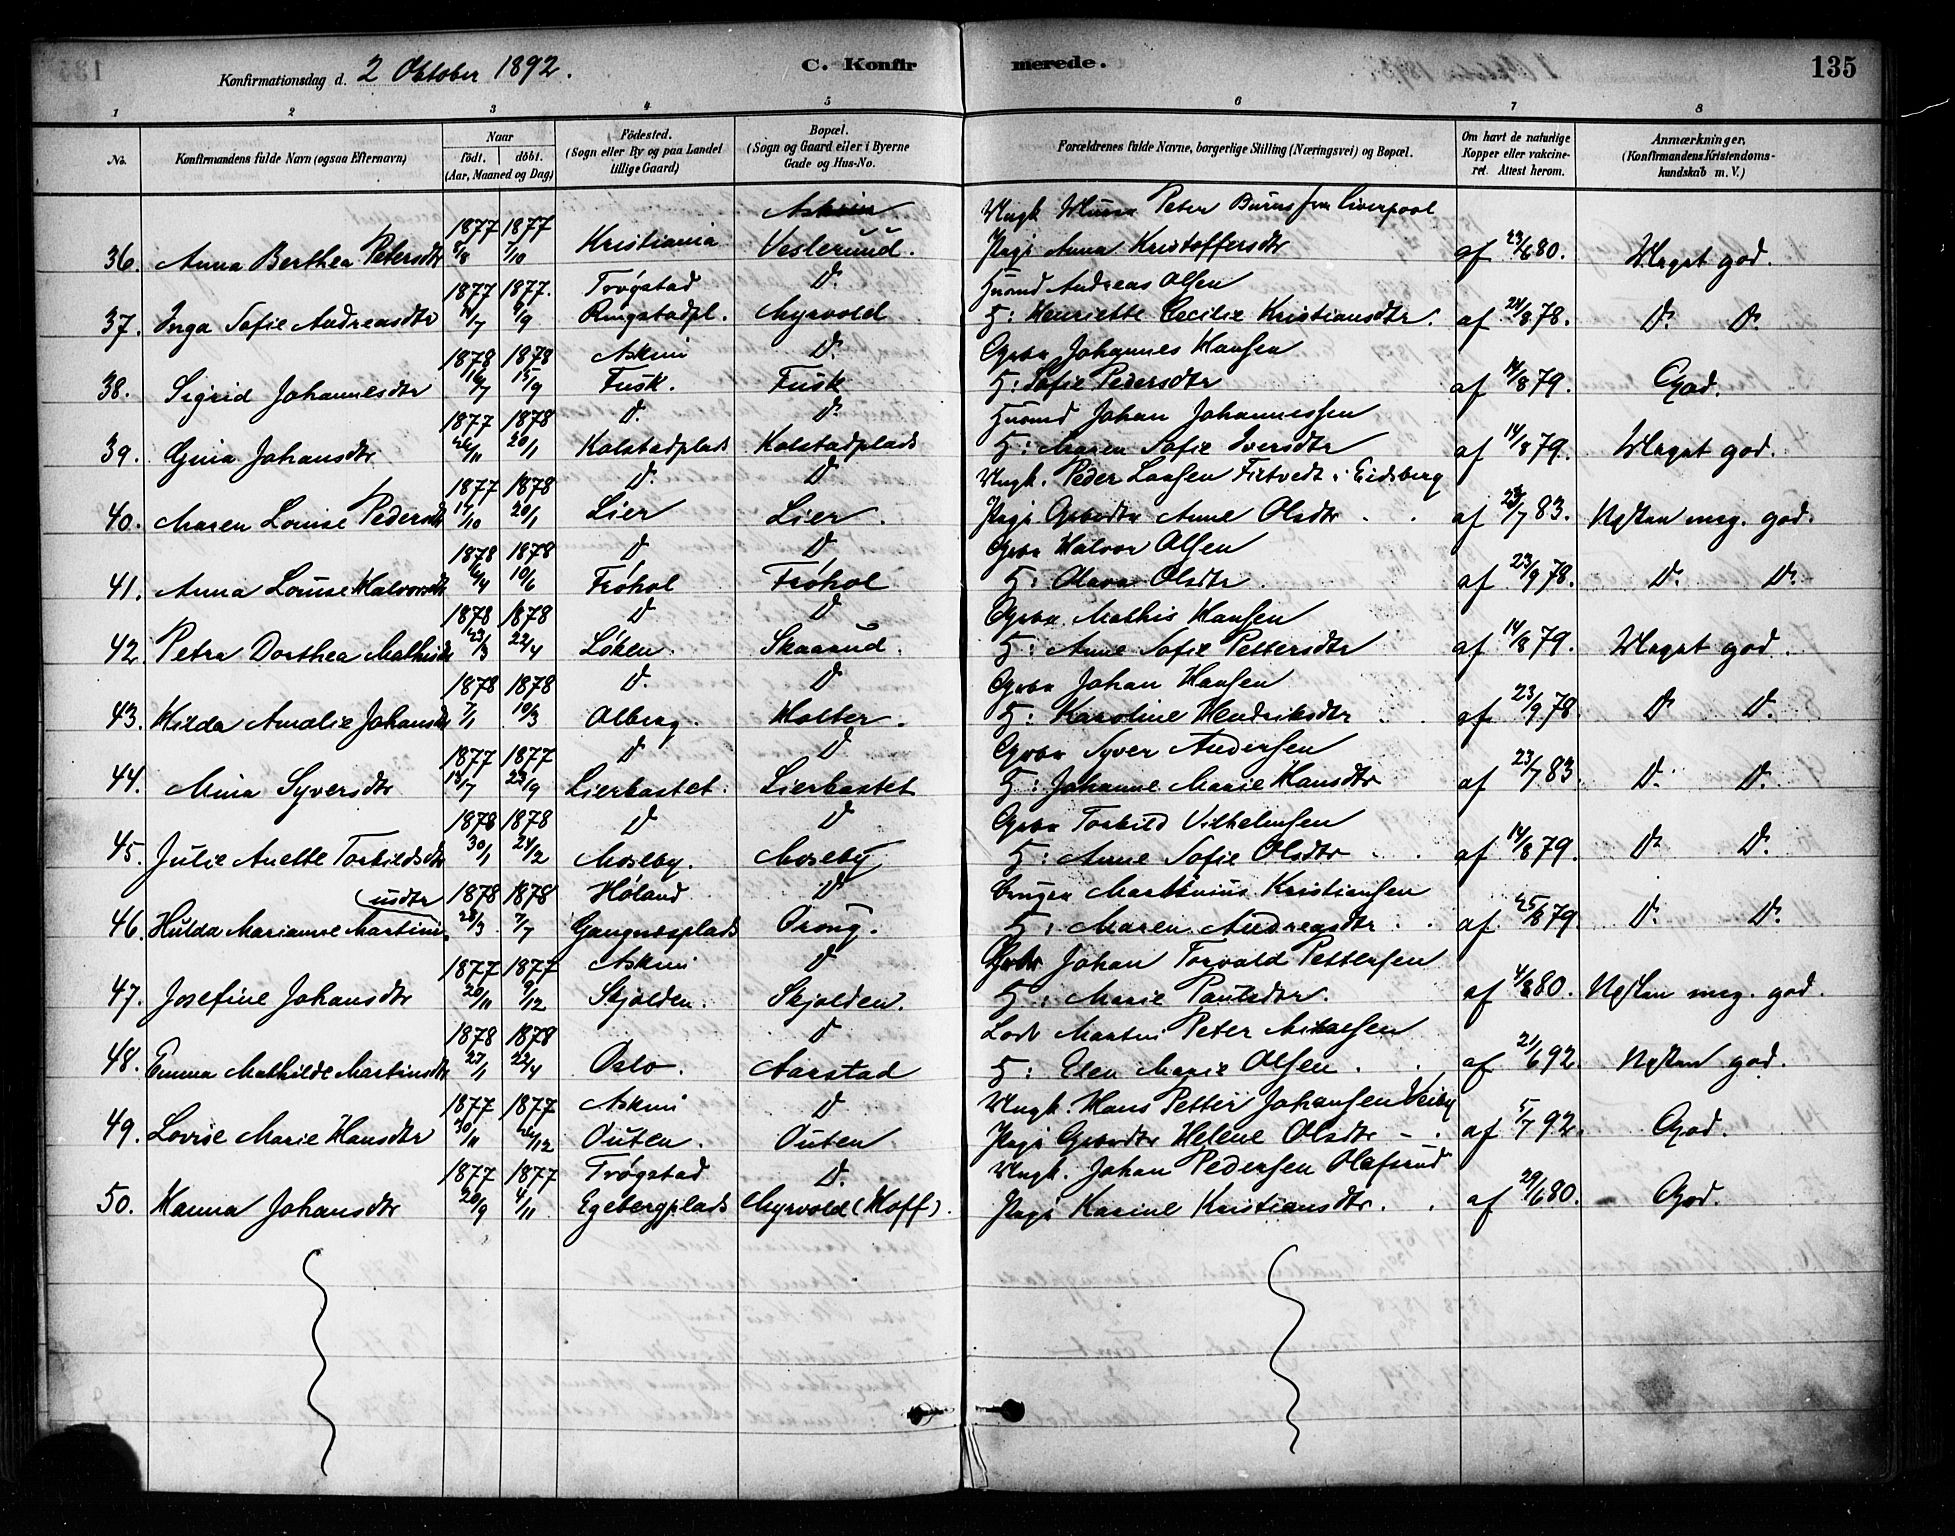 Konfirmationsdag d. 2 Oktober 1892. C. Konfirmerede. 135
1 2 3 4 5 6 7 8
No. Konfirmandens fulde Navn (ogsaa Efternavn) Naar födt. döbt. (Aar, Maaned og Dag) Födested. (Sogn eller By og paa Landet tillige Gaard) Bopæl. (Sogn og Gaard eller i Byerne Gade og Hus-No. Forældrenes fulde Navne, borgerlige Stilling (Næringsvei) og Bopæl. Om havt de naturlige Kopper eller vakcineret. Attest herom. Anmærkninger, (Konfirmandens Kristendomskundskab m. V.)
1877 1877 Askim Ungk. Peter Burns fra Liverpool
36. Anna Berthea Petersdtr 8/8 /10 Kristiania Veslerud. Pige Anna Kristoffersdtr af 23/6 80. Meget god.
1877 1877. Trøgstad D. Husmd Andreas Olsen
37. Inga Sofie Andreasdtr /7 9/9 Ringstadpl. Myrvold H: Henriette Cecilie Kristiansdtr. af 24/8 78. D. D.
1878 1878 Askim D. Grbr Johannes Hansen
38. Sigrid Johannesdtr 16/7 15/9 Fusk. Fusk H: Sofie Pedersdtr af 14/8 79. God.
1877 1878 D. D. Husmd Johan Johannessen
39. Gina Johansdtr 26/11 20/1 Kolstadplads Kolstadplads H: Maren Sofie Iversdtr af 14/8 79. Meget god.
1877 1878 D. D Ungk. Peder Larsen Firtvedt i Eidsberg
40. Maren Louise Pedersdtr 14/10 20/1 Lier Lier. Pige Grbrdtr Anne Olsdtr af 23/7 83. Næsten meg. god.
1878 1878 D D Grbr Halvor Olsen
41. Anna Louise Halvorsdtr 16/4 10/6 Frøhol Frøhol H: Olava Olsdtr af 23/9 78. D. D.
1878 1878 D D Grbr Mathis Hansen
42. Petra Dorthea Mathisdtr 23/3 22/4 Løken. Skaarud. H: Anne Sofie Pettersdtr af 14/8 79. Meget god.
1878 1878 D. D Grbr Johan Hansen
43. Hilda Amalie Johansdtr 7/1 10/3 Olberg. Holter. H: Karoline Hendriksdtr af 23/9 78. D D.
1877 1877 D D Grbr Syver Andersen
44. Mina Syversdtr 14/7 23/9 Lierkastet. Lierkastet H: Johanne Marie Hansdtr af 23/7 83 D. D.
1878 1878 D D Grbr Torkild Vilhelmsen
45. Julie Anette Torkildsdtr 30/1 24/2 Moseby. Moseby H: Anne Sofie Olsdtr af 14/8 79. D. D.
usdtr 1878 1878 Høland D Bruger Martinius Kristiansen
46. Hulda Marianne Martini- 28/3 7/7 Gangnæsplads Prong. H: Maren Andreasdtr af 25/8 79. D. D.
1877 1877 Askim D Grbr Johan Torvald Pettersen
47. Josefine Johansdtr 20/11 9/12 Skjolden. Skjolden. H: Marie Paulsdtr. af 4/8 80. Næsten meg. god.
1878 1878 D Martin Peter
48. Emma Mathilde Martinsdtr 27/1 22/4 Oslo. Aarstad H: Elen Marie Olsen af 21/6 92. Næsten god.
1877 1877 Askim D Ungk. Hans Petter Johansen Veiby
49. Lovise Marie Hansdtr 30/11 26/12 Outen. Outen. Pige Grbrdtr Helene Olsdtr af 5/7 92. God.
1877 1877 Trøgstad D. Ungk. Johan Pedersen Olafsrud
50. Hanna Johansdtr 20/9 4/11 Egebergplads Myrvold (Hoff). Pige Karine Kristiansdtr. af 29/6 80. God.